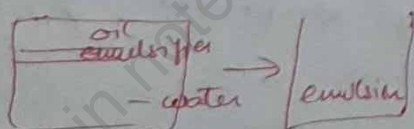 oil
emulsifier
- water
emulsion